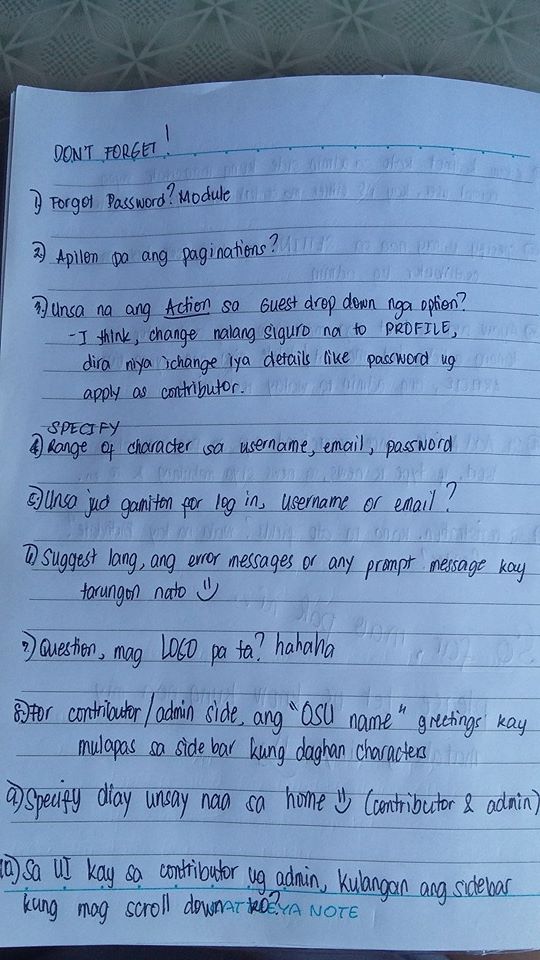 DON'T FORGET!
1) Forgot Password? Module
2) Apilon pa ang paginations?
3) Unsa na ang Action sa Guest drop down nga option?
- I think, change nalang siguro na to PROFILE,
dira niya ichange iya details like password ug
apply as contributor.
SPECIFY
4) Range of character sa username, email, password
5) Unsa jud gamiton for log in, username or email?
6) Suggest lang, ang error messages or any prompt message kay
tarungon nato
7) Question, mag LOGO pa ta? hahaha
8) For contributor/admin side, ang "OSU name" greetings kay
mulapas sa side bar kung daghan characters
9) Specify diay unsay naa sa home (contributor & admin)
10) Sa UI kay sa contributor ug admin, kulangan ang sidebar
kung mag scroll down ko?
CATTLEYA NOTE